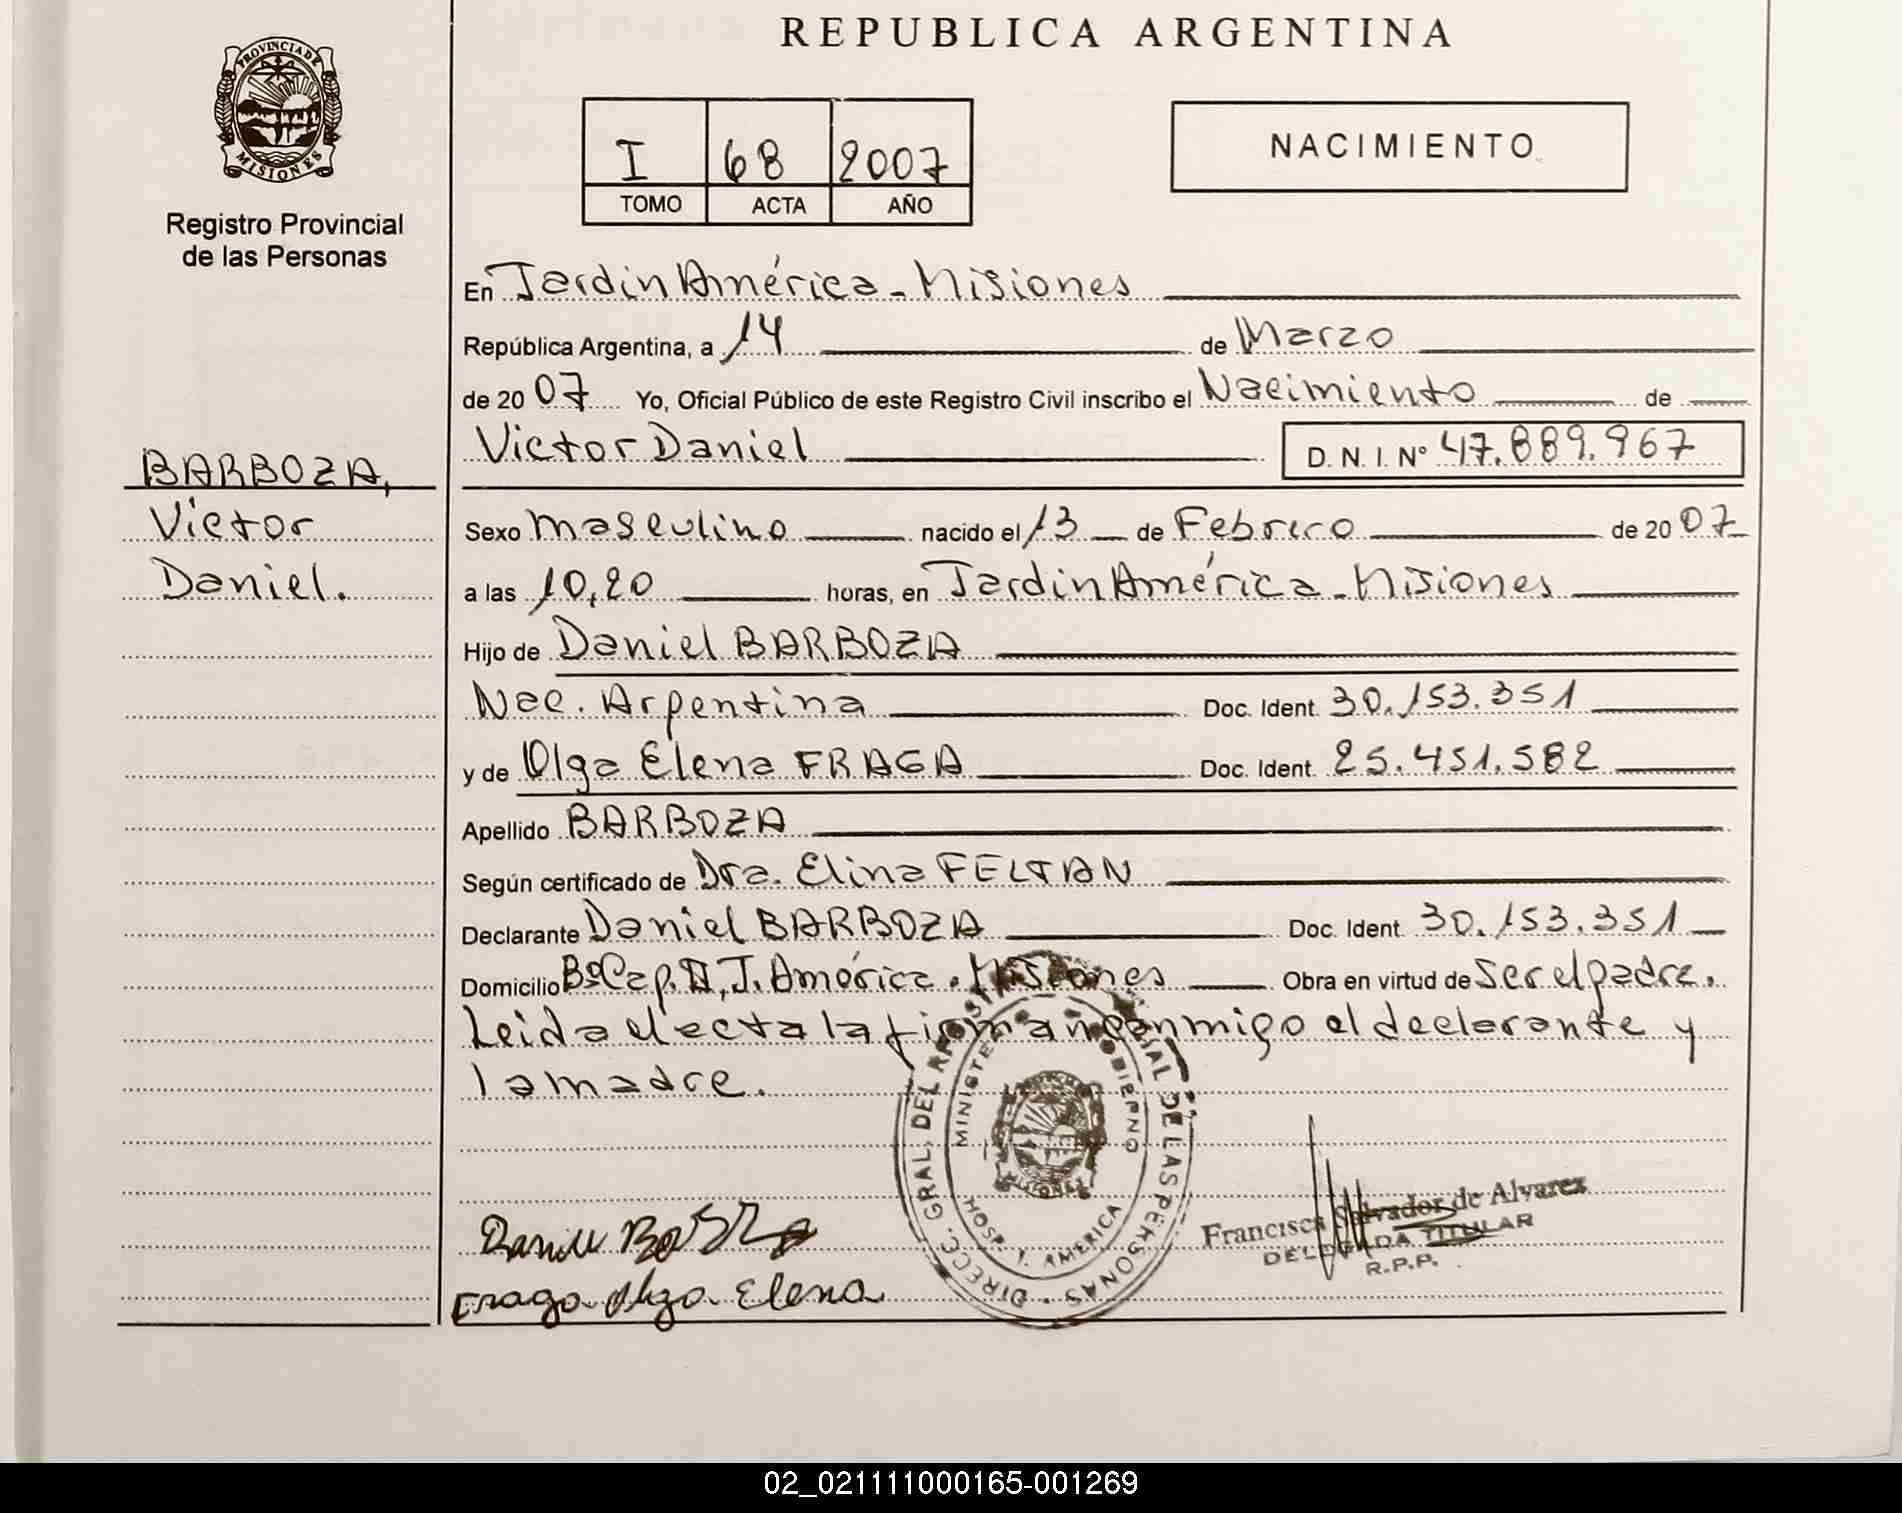 REPUBLICA ARGENTINA
PROVINCIA DE
MISIONES
Registro Provincial
de las Personas
I 68 2007
TOMO ACTA AÑO
NACIMIENTO
En Jardin América - Misiones
República Argentina, a 14 de Marzo
de 2007 Yo, Oficial Público de este Registro Civil inscribo el Nacimiento de
Victor Daniel D. N. I. N° 47.889.967
BARBOZA,
Victor
Daniel.
Sexo masculino nacido el 13 de Febrero de 2007
a las 10,20 horas, en Jardin América - Misiones
Hijo de Daniel BARBOZA
Nac. Argentina Doc. Ident. 30.153.351
y de Olga Elena FRAGA Doc. Ident. 25.451.582
Apellido BARBOZA
Según certificado de Dra. Elina FELTAN
Declarante Daniel BARBOZA Doc. Ident. 30.153.351
Domicilio B° Cap. J. América - Misiones Obra en virtud de ser el padre.
Leida el acta la firman conmigo el declarante y
la madre.
DIRECC. GRAL. DEL REGISTRO PROVINCIAL DE LAS PERSONAS
MINISTERIO GOBIERNO
MISIONES
HOSP. J. AMERICA
Francisca Salvador de Alvarez
DELEGADA TITULAR
R.P.P.
Daniel
Fraga Olga Elena
02_021111000165-001269